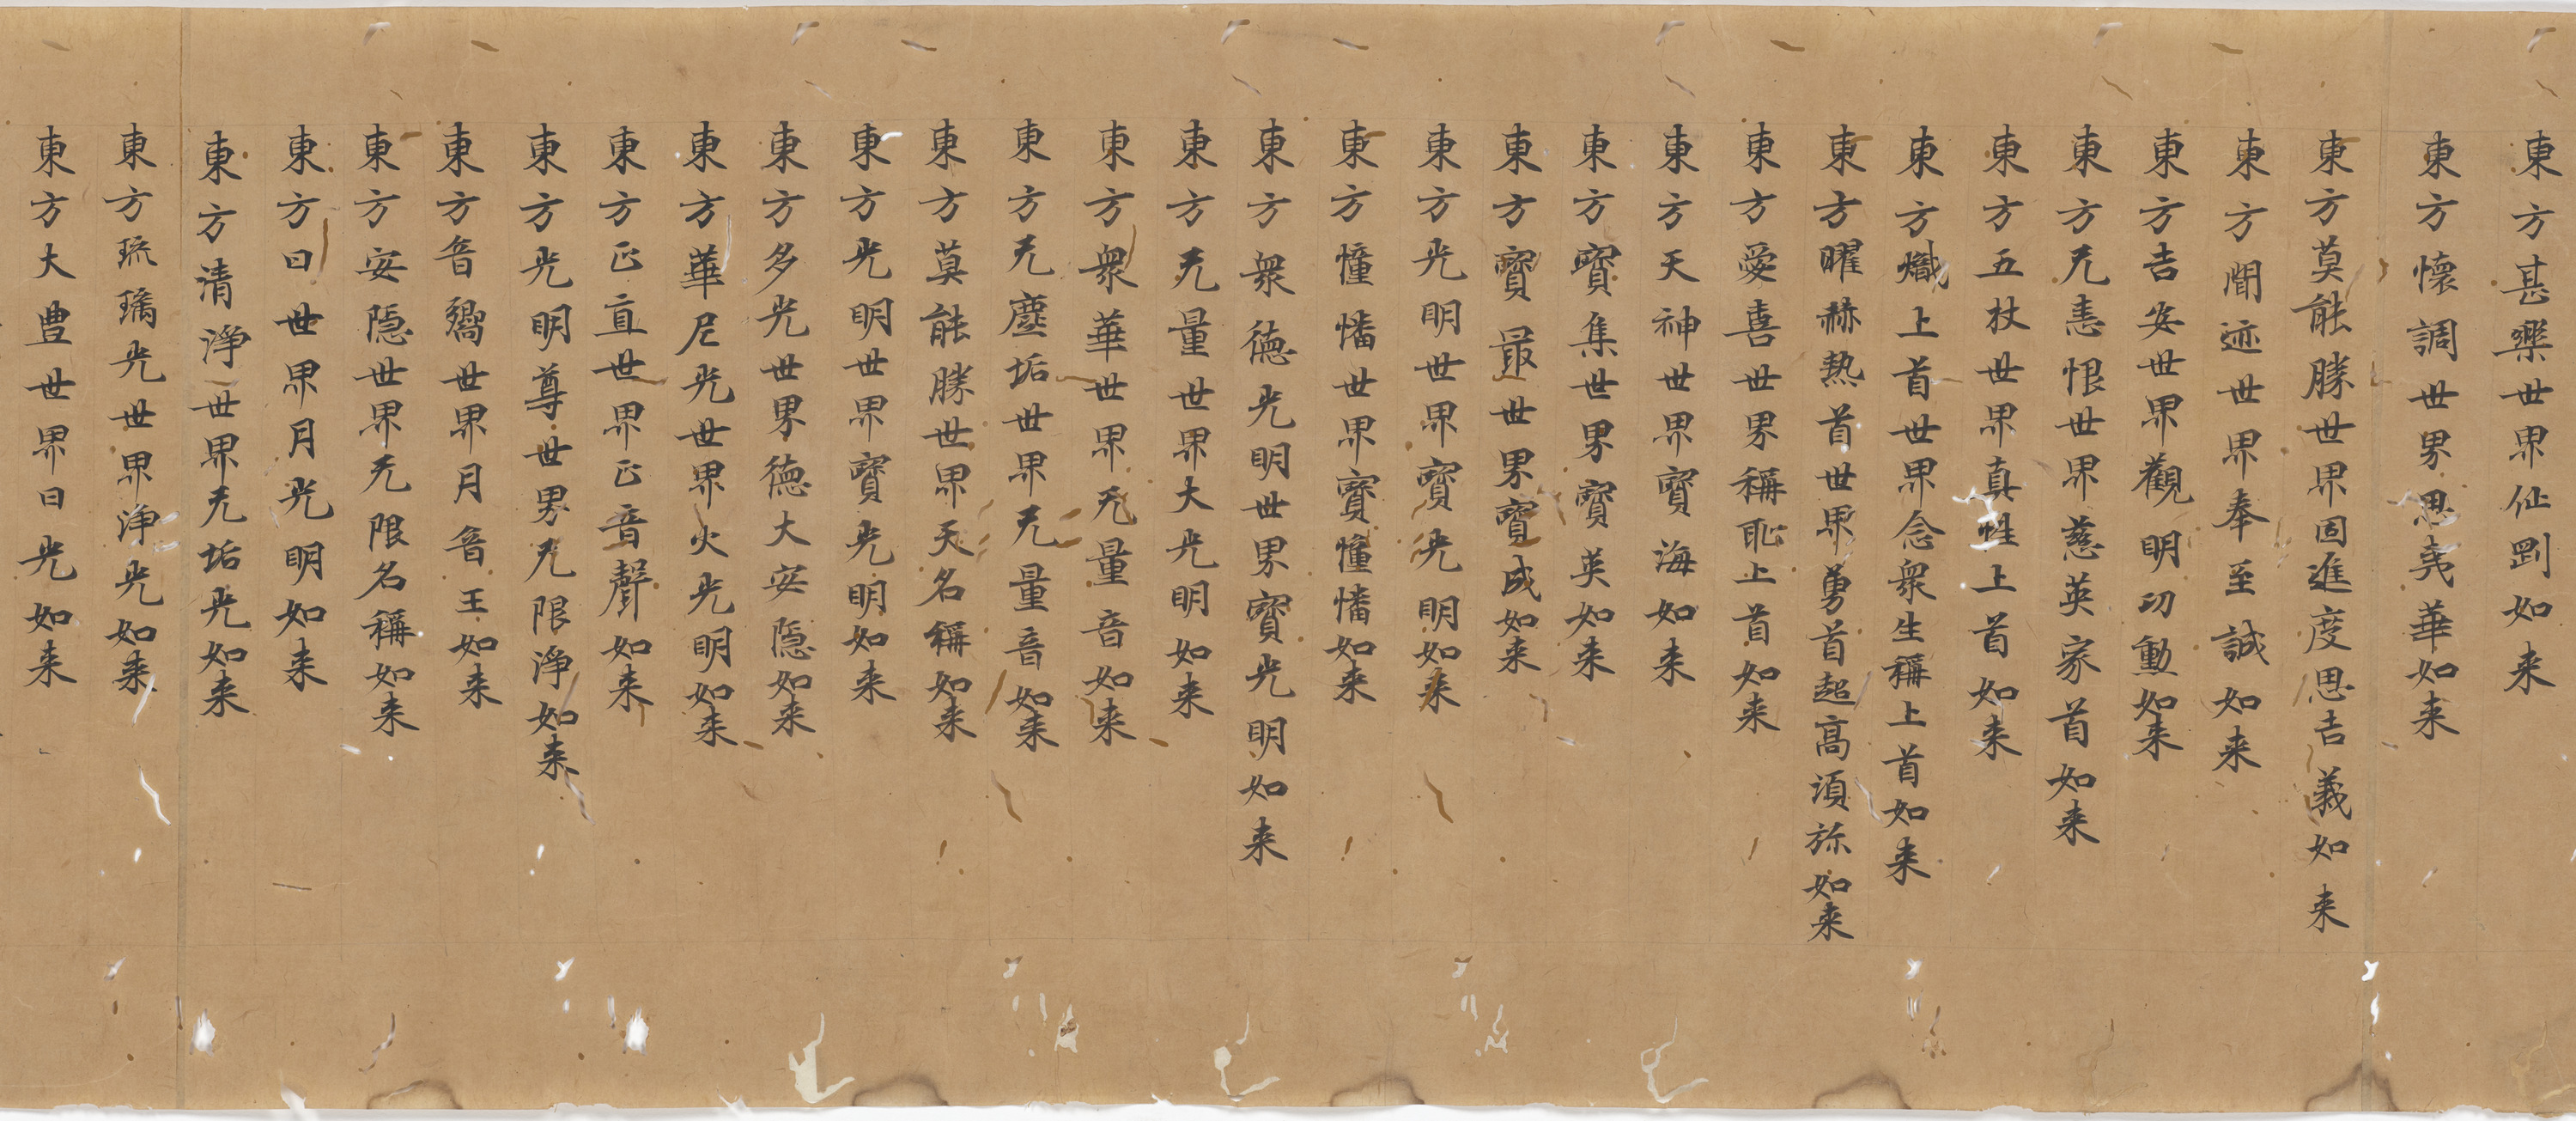 東方甚樂世界仙剛如来
東方懷調世界思夷華如来
東方莫能勝世界固進度思吉義如来
東方聞迹世界奉至誠如来
東方吉安世界觀明功勳如来
東方无恚恨世界慈英家首如来
東方五杖世界真性上首如来
東方熾上首世界念衆生稱上首如来
東方曜赫熱首世界勇首超高湏弥如来
東方愛喜世界稱恥上首如来
東方天神世界寳海如来
東方寳集世界寳英如来
東方寳最世界寳成如来
東方光明世界寳光明如来
東方憧憣世界寳憧憣如来
東方衆德光明世界寳光明如来
東方无量世界大光明如来
東方衆華世界无量音如来
東方无塵垢世界无量音如来
東方莫能勝世界天名稱如来
東方光明世界寳光明如来
東方多光世界德大安隠如来
東方華尼光世界火光明如来
東方正直世界正音聲如来
東方光明尊世界无限淨如来
東方音嚮世界月音王如来
東方安隠世界无限名稱如来
東方日世界月光明如来
東方清淨世界无垢光如来
東方琉璃光世界淨光如来
東方大豊世界日光如来